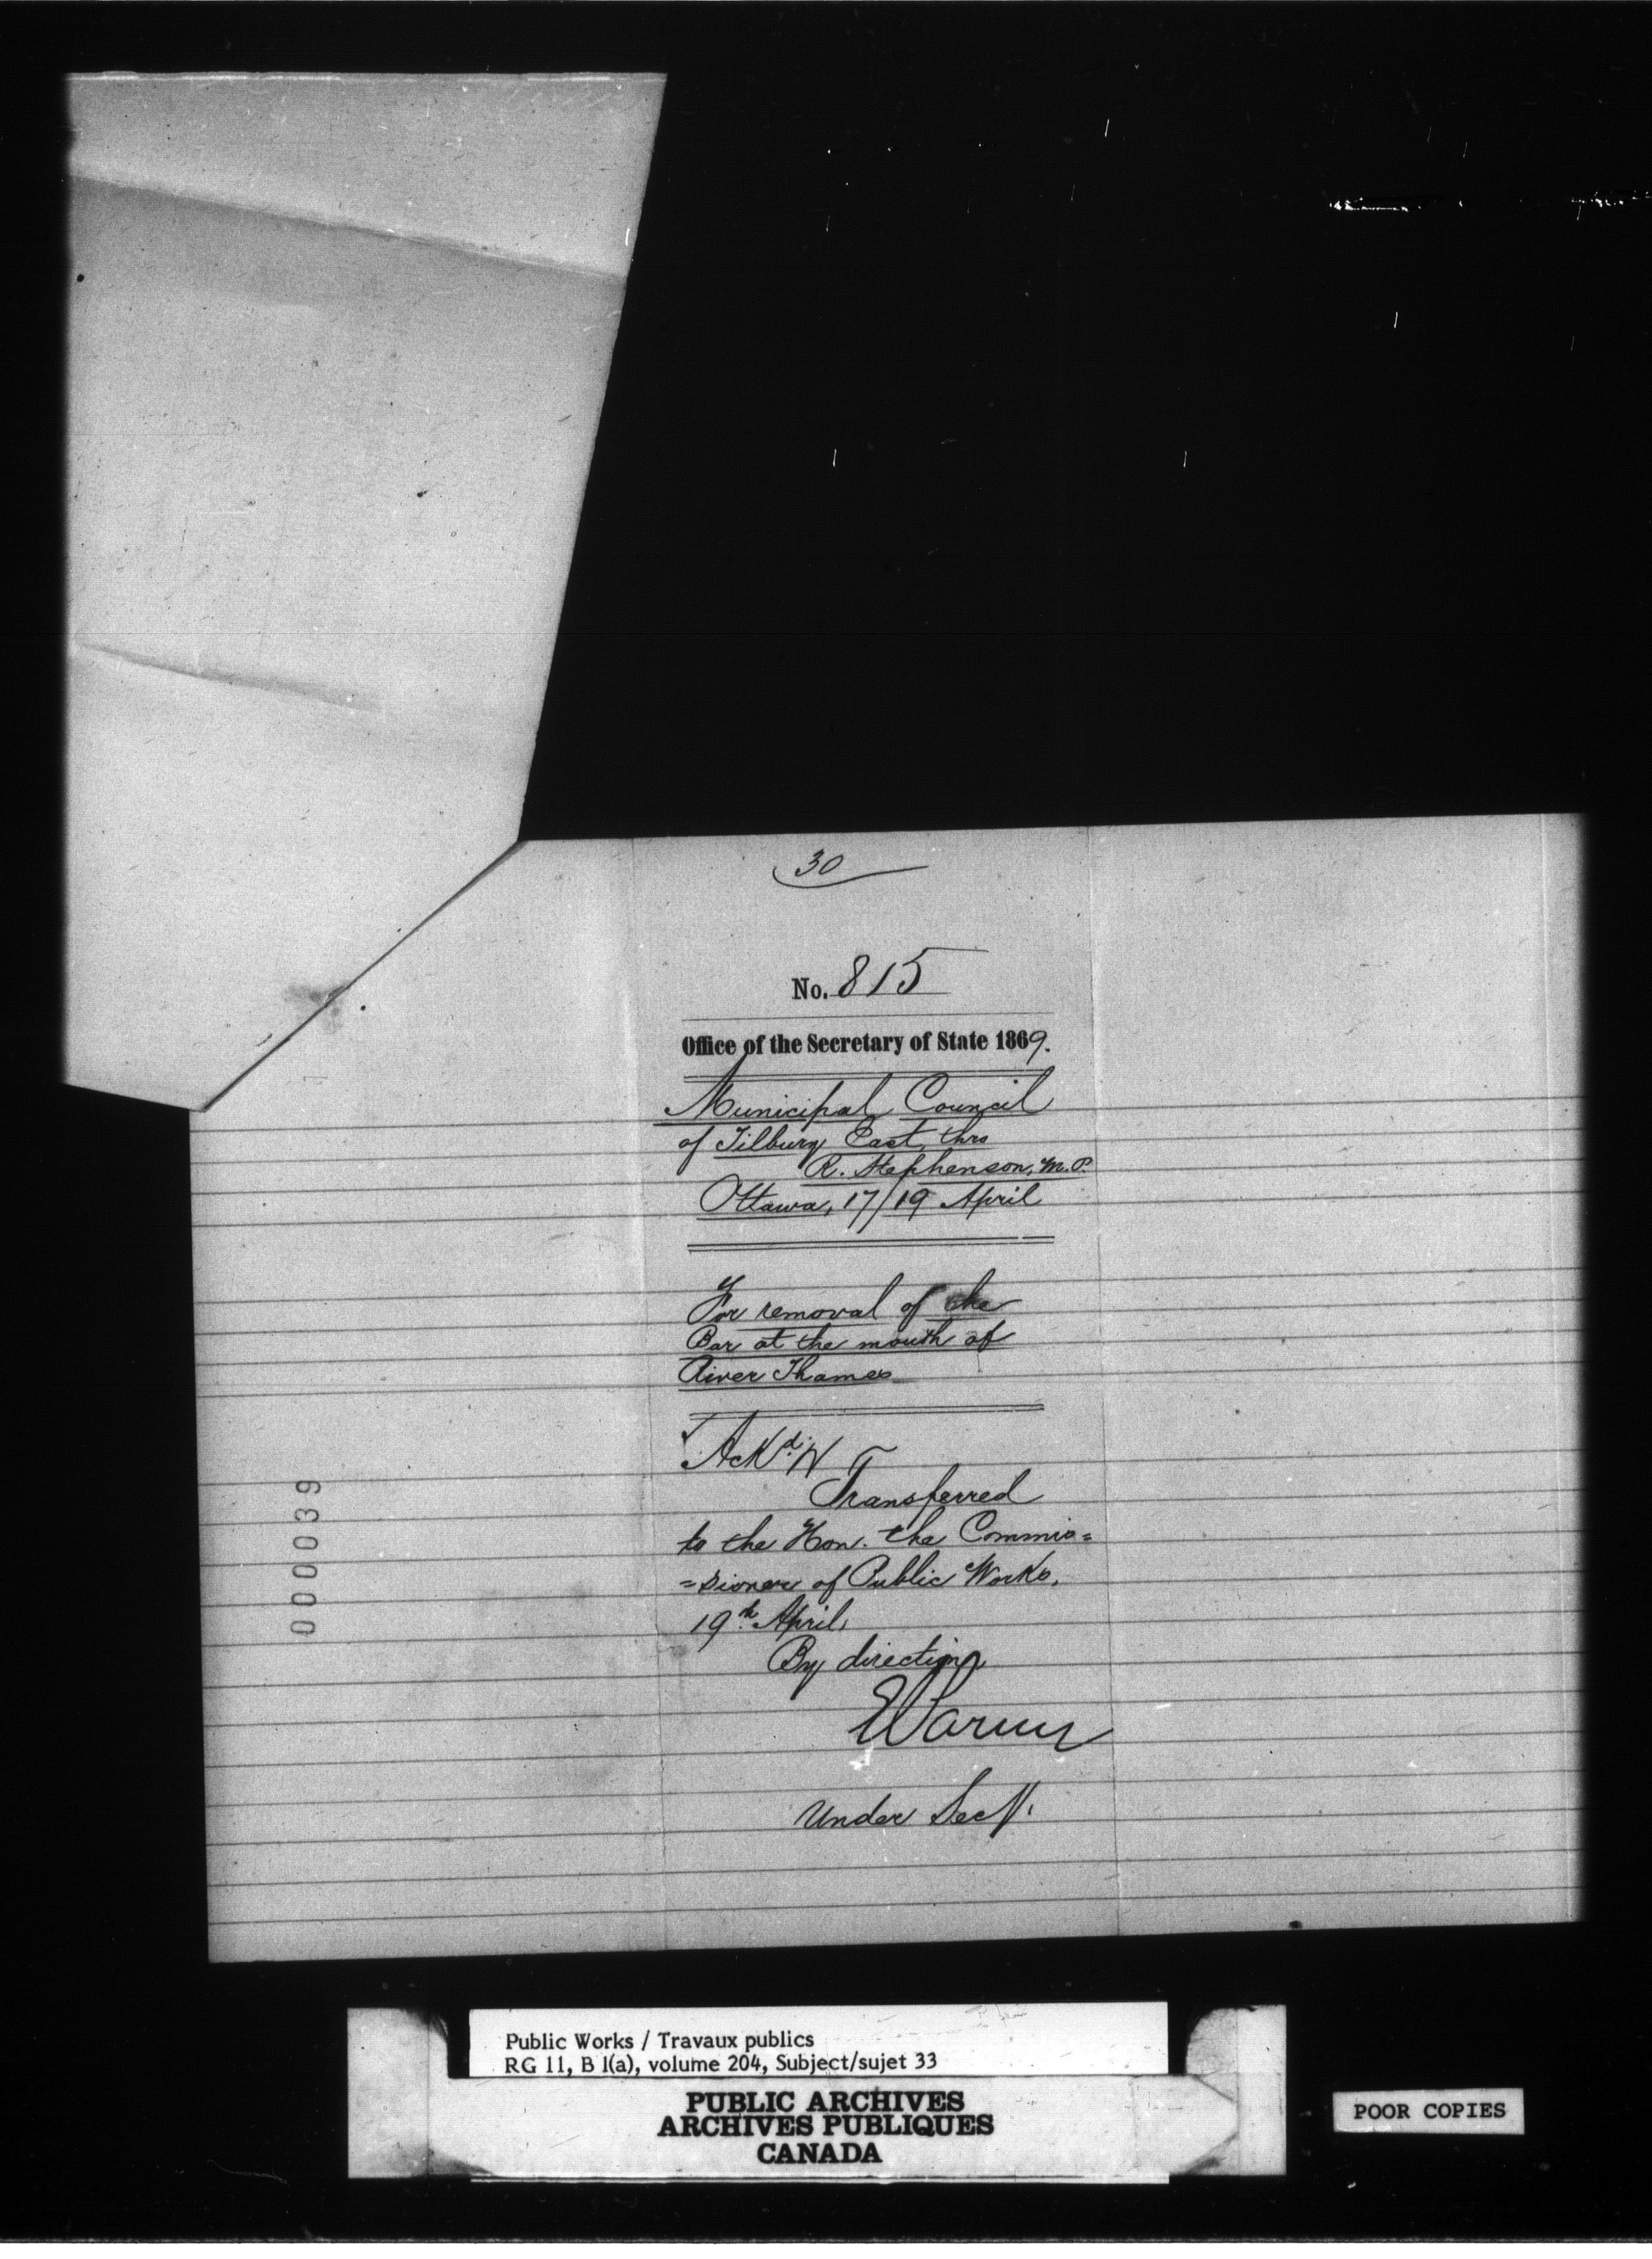 30
No. 815
Office of the Secretary of State 1869.
Municipal Council
of Tilbury East, thro
R. Stephenson, M.P.
Ottawa, 17/19 April
For removal of the
Bar at the mouth of
River Thames
Ackd.
Transferred
to the Hon. the Commis=
=sioner of Public Works,
19th April,
By direction
Under Secy.
000039
Public Works / Travaux publics
RG 11, B 1(a), volume 204, Subject/sujet 33
PUBLIC ARCHIVES
ARCHIVES PUBLIQUES
CANADA
POOR COPIES